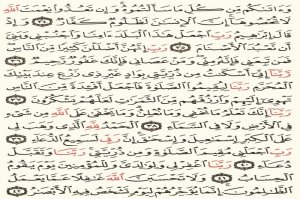 وَءَاتَىٰكُم مِّن كُلِّ مَا سَأَلْتُمُوهُ وَإِن تَعُدُّوا۟ نِعْمَتَ ٱللَّهِ
لَا تُحْصُوهَآ إِنَّ ٱلْإِنسَٰنَ لَظَلُومٌ كَفَّارٌ ٣٤ وَإِذْ
قَالَ إِبْرَٰهِيمُ رَبِّ ٱجْعَلْ هَٰذَا ٱلْبَلَدَ ءَامِنًا وَٱجْنُبْنِى وَبَنِىَّ
أَن نَّعْبُدَ ٱلْأَصْنَامَ ٣٥ رَبِّ إِنَّهُنَّ أَضْلَلْنَ كَثِيرًا مِّنَ ٱلنَّاسِ
فَمَن تَبِعَنِى فَإِنَّهُۥ مِنِّى وَمَنْ عَصَانِى فَإِنَّكَ غَفُورٌ رَّحِيمٌ ٣٦
رَّبَّنَآ إِنِّىٓ أَسْكَنتُ مِن ذُرِّيَّتِى بِوَادٍ غَيْرِ ذِى زَرْعٍ عِندَ بَيْتِكَ
ٱلْمُحَرَّمِ رَبَّنَا لِيُقِيمُوا۟ ٱلصَّلَوٰةَ فَٱجْعَلْ أَفْـِٔدَةً مِّنَ ٱلنَّاسِ
تَهْوِىٓ إِلَيْهِمْ وَٱرْزُقْهُم مِّنَ ٱلثَّمَرَٰتِ لَعَلَّهُمْ يَشْكُرُونَ ٣٧
رَبَّنَآ إِنَّكَ تَعْلَمُ مَا نُخْفِى وَمَا نُعْلِنُ وَمَا يَخْفَىٰ عَلَى ٱللَّهِ مِن شَىْءٍ
فِى ٱلْأَرْضِ وَلَا فِى ٱلسَّمَآءِ ٣٨ ٱلْحَمْدُ لِلَّهِ ٱلَّذِى وَهَبَ لِى
عَلَى ٱلْكِبَرِ إِسْمَٰعِيلَ وَإِسْحَٰقَ إِنَّ رَبِّى لَسَمِيعُ ٱلدُّعَآءِ ٣٩
رَبِّ ٱجْعَلْنِى مُقِيمَ ٱلصَّلَوٰةِ وَمِن ذُرِّيَّتِى رَبَّنَا وَتَقَبَّلْ
دُعَآءِ ٤٠ رَبَّنَا ٱغْفِرْ لِى وَلِوَٰلِدَىَّ وَلِلْمُؤْمِنِينَ يَوْمَ يَقُومُ
ٱلْحِسَابُ ٤١ وَلَا تَحْسَبَنَّ ٱللَّهَ غَٰفِلًا عَمَّا يَعْمَلُ
ٱلظَّٰلِمُونَ إِنَّمَا يُؤَخِّرُهُمْ لِيَوْمٍ تَشْخَصُ فِيهِ ٱلْأَبْصَٰرُ ٤٢